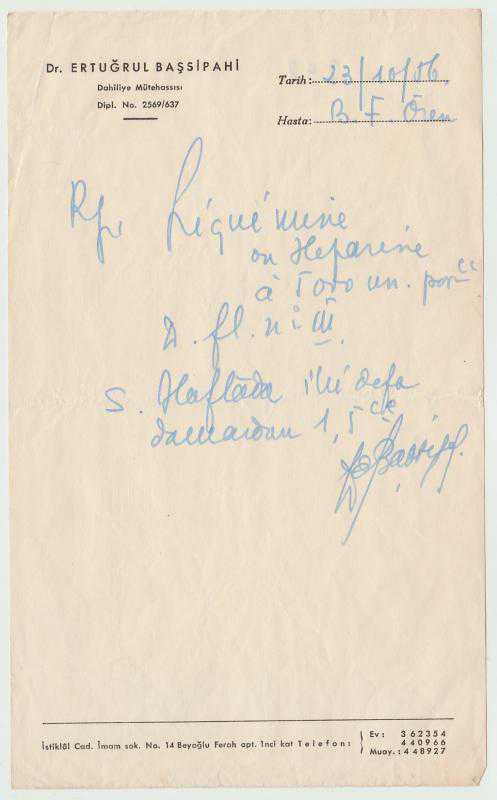 Dr. ERTUĞRUL BAŞSİPAHİ
Dahiliye Mütehassısı
Dipl. No. 2569/637
Tarih: 23/10/56.
Hasta: B. F. Ören
Rp/ Liquémine
ou Heparine
à 5000 un. par cc
D. fl. n: III
S. Haftada iki defa
damardan 1,5 cc
İstiklâl Cad. İmam sok. No. 14 Beyoğlu Ferah apt. 1nci kat Telefon:
Ev: 362354
440966
Muay.: 448927